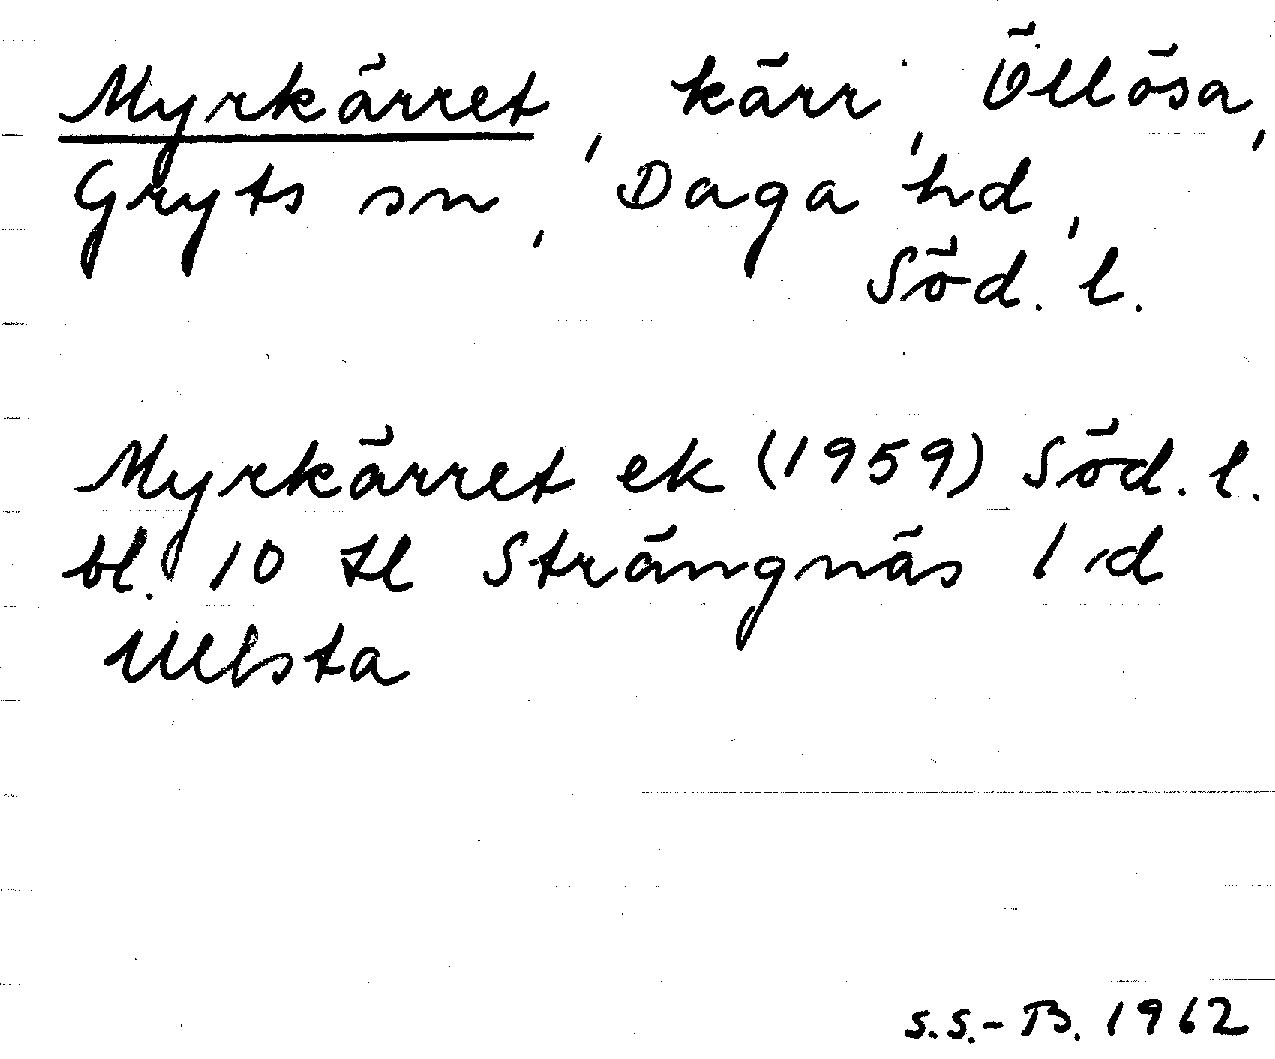 Myrkärret, kärr, Öllösa,
Gryts sn, Daga hd,
Söd. l.
Myrkärret ek (1959) Söd. l.
bl. 10 tl Strängnäs 1 d
Ulvsta
S.S.-B. 1962